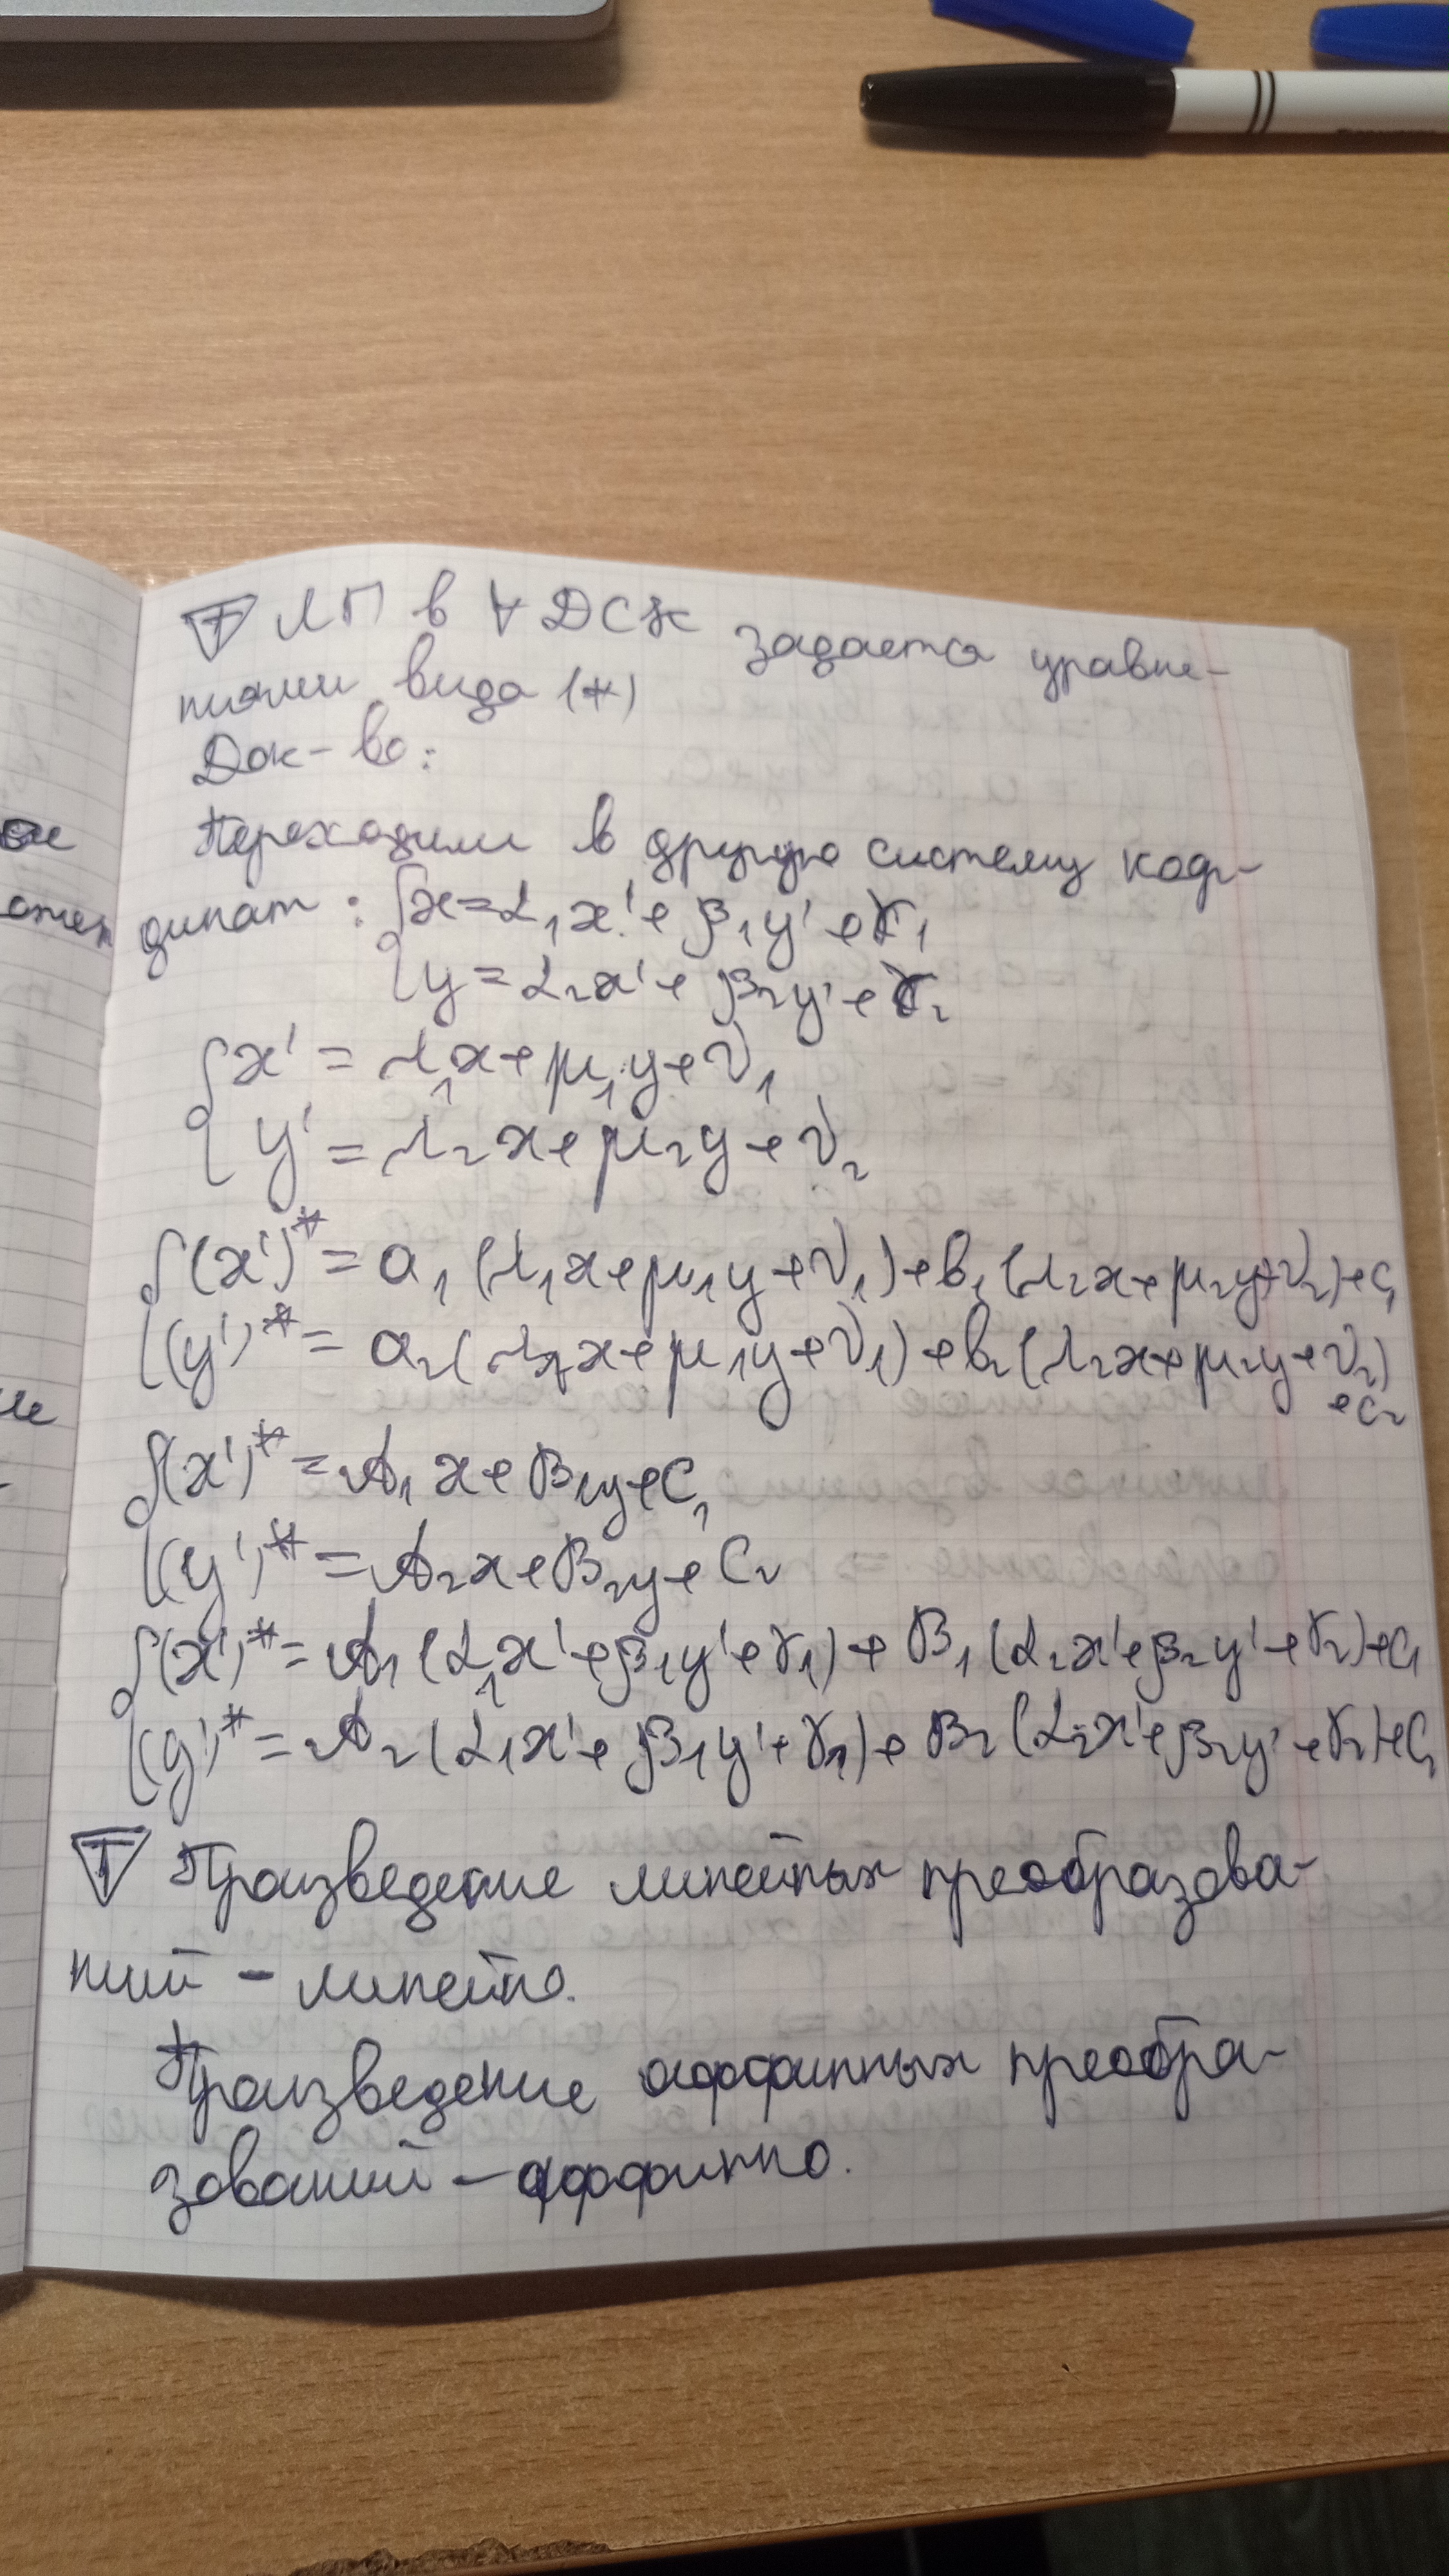 Т ЛП в ∀ ДСК задается уравне-
ниями вида (*)
Док-во:
Переходим в другую систему коор-
динат: { x = α₁x' + β₁y' + γ₁
{ y = α₂x' + β₂y' + γ₂
{ x' = λ₁x + μ₁y + ν₁
{ y' = λ₂x + μ₂y + ν₂
{ (x')* = a₁(λ₁x + μ₁y + ν₁) + b₁(λ₂x + μ₂y + ν₂) + c₁
{ (y')* = a₂(λ₁x + μ₁y + ν₁) + b₂(λ₂x + μ₂y + ν₂)
+ c₂
{ (x')* = A₁x + B₁y + C₁
{ (y')* = A₂x + B₂y + C₂
{ (x')* = A₁(α₁x' + β₁y' + γ₁) + B₁(α₂x' + β₂y' + γ₂) + C₁
{ (y')* = A₂(α₁x' + β₁y' + γ₁) + B₂(α₂x' + β₂y' + γ₂) + C₂
Т Произведение линейных преобразова-
ний - линейно.
Произведение аффинных преобра-
зований - аффинно.